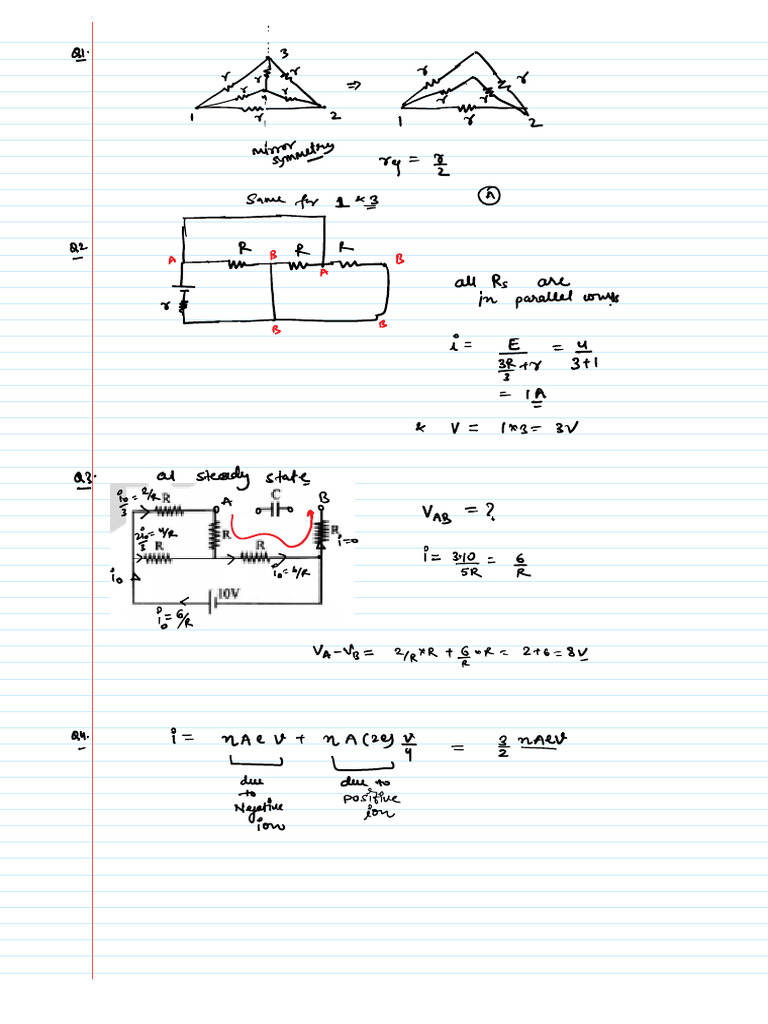 Q1.
3
r r r r r
4
1 r 2
⇒
r r r r
1 r 2
mirror
symmetry
req = r/2
Same for 1 & 3
(A)
Q2
A R B R R B
A
r
B B
all Rs are
in parallel comb
i = E/(3R/3 + r) = 4/(3+1)
= 1A
& V = 1*3 = 3V
Q3.
at steady state
i₀/3 = 2/R R A C B
2i₀/3 = 4/R R R R i=0
R
i₀ i₀ = 6/R
10V
i₀ = 6/R
V_AB = ?
i = 3×10/5R = 6/R
V_A - V_B = 2/R × R + 6/R × R = 2+6 = 8V
Q4.
i = nAeV + nA(2e) V/4 = 3/2 nAeV
due to Negative ion
due to positive ion